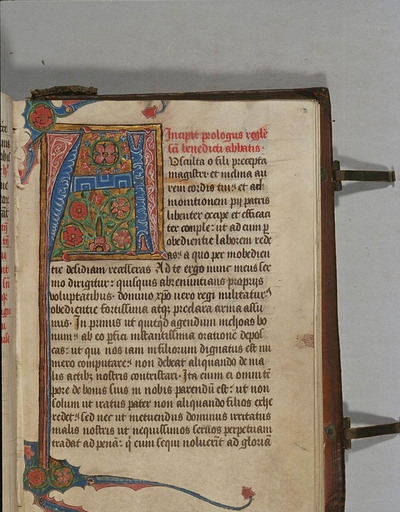 Incipit prologus regle
sci benedicti abbatis.
Usculta o fili precepta
magistri et inclina au
rem cordis tui et ad
monitionem pij patris
libenter excipe et efficaci
ter comple: ut ad eum p
obedientie laborem rede
as: a quo per inobedien
tie desidiam recesseras Ad te ergo nunc meus ser
mo dirigitur: quisquis abrenuncians proprijs
voluptatibus. domino xpo vero regi militatur
obedientie fortissima atqz preclara arma assu
mis. In primis ut quicqd agendum inchoas bo
num: ab eo pfici instantissima oratione depos
cas: ut qui nos iam in filiorum dignatus est nu
mero computare: non debeat aliquando de ma
lis actibz nostris contristari. Ita enim ei omni te
pore de bonis suis in nobis parendu est: ut non
solum ut iratus pater non aliquando filios exhe
redet: sed nec ut metuendus dominus irritatus
malis nostris ut nequissimos servos perpetuam
tradat ad pena: q eum sequi noluerit ad gloria